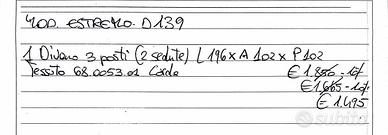 MOD. ESTREMO. D139
1 Divano 3 posti (2 sedute) L 196 x A 102 x P 102
Tessuto 68.0053.01 Corda € 1.850 - 10%
€ 1.665 - 10%
€ 1.495
subito